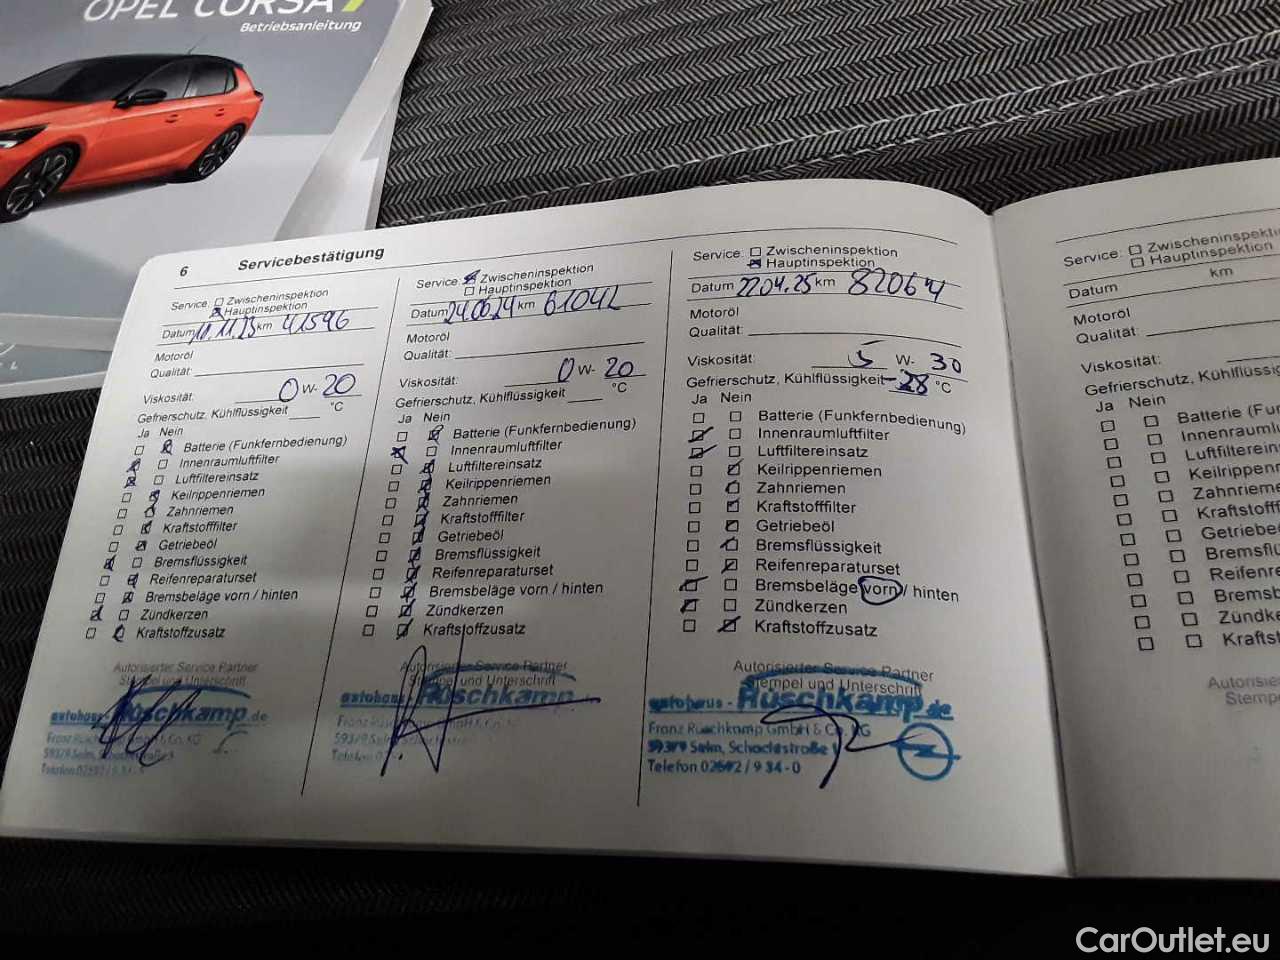 OPEL CORSA
Betriebsanleitung
6 Servicebestätigung
Service: Zwischeninspektion
Hauptinspektion
Datum 11.23 km 41596
Motoröl
Qualität:
Viskosität: 0 W- 20
Gefrierschutz, Kühlflüssigkeit °C
Ja Nein
Batterie (Funkfernbedienung)
Innenraumluftfilter
Luftfiltereinsatz
Keilrippenriemen
Zahnriemen
Kraftstofffilter
Getriebeöl
Bremsflüssigkeit
Reifenreparaturset
Bremsbeläge vorn / hinten
Zündkerzen
Kraftstoffzusatz
Autorisierter Service Partner
Stempel und Unterschrift
autohaus - Rüschkamp.de
Franz Rüschkamp GmbH & Co. KG
59379 Selm,
Telefon 02592 / 9 34
Service: Zwischeninspektion
Hauptinspektion
Datum 24.06.24 km 61042
Motoröl
Qualität:
Viskosität: 0 W- 20
Gefrierschutz, Kühlflüssigkeit °C
Ja Nein
Batterie (Funkfernbedienung)
Innenraumluftfilter
Luftfiltereinsatz
Keilrippenriemen
Zahnriemen
Kraftstofffilter
Getriebeöl
Bremsflüssigkeit
Reifenreparaturset
Bremsbeläge vorn / hinten
Zündkerzen
Kraftstoffzusatz
Autorisierter Service Partner
Stempel und Unterschrift
autohaus - Rüschkamp
Franz
59379 Selm
Service: Zwischeninspektion
Hauptinspektion
Datum 22.04.25 km 82064
Motoröl
Qualität:
Viskosität: 5 W- 30
Gefrierschutz, Kühlflüssigkeit -28 °C
Ja Nein
Batterie (Funkfernbedienung)
Innenraumluftfilter
Luftfiltereinsatz
Keilrippenriemen
Zahnriemen
Kraftstofffilter
Getriebeöl
Bremsflüssigkeit
Reifenreparaturset
Bremsbeläge vorn / hinten
Zündkerzen
Kraftstoffzusatz
Autorisierter Service Partner
Stempel und Unterschrift
autohaus - Rüschkamp.de
Franz Rüschkamp GmbH & Co. KG
59379 Selm,
Telefon 02592 / 9 34 - 0
Service: Zwischeninspekti
Hauptinspektion
Datum km
Motoröl
Qualität:
Viskosität:
Gefrierschutz, Kühlflüssig
Ja Nein
Batterie (Fu
Innenrauml
Luftfilterein
Keilrippenr
Zahnrieme
Kraftstofff
Getriebe
Bremsfl
Reifenr
Bremsb
Zündke
Kraftst
Autorisie
Stemp
CarOutlet.eu